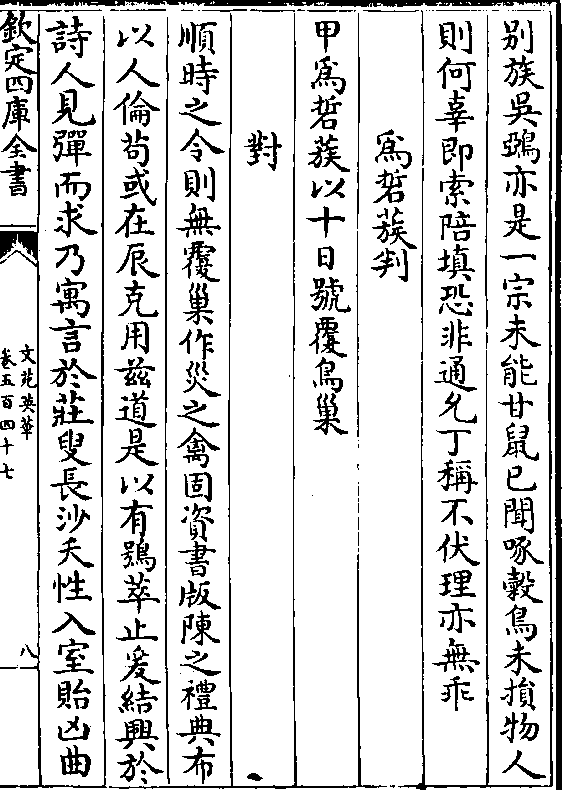 别族吳鵶亦是一宗未能甘鼠已聞啄觳鳥未損物人
則何辜即索陪填恐非通允丁稱不伏理亦無乖
爲硩蔟判
甲爲硩蔟以十日號覆鳥巢
對
順時之令則無覆巢作災之禽固資書版陳之禮典布
以人倫苟或在辰克用兹道是以有鴞萃止爰結興於
詩人見彈而求乃寓言於莊叟長沙夭性入室貽凶曲
欽定四庫全書
文苑英華
卷五百四十七
八